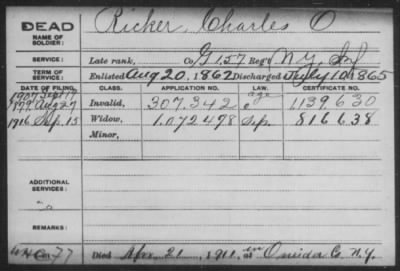 DEAD
NAME OF SOLDIER: Ricker, Charles O
SERVICE: Late rank, Co G 157 Reg't N.Y. Inf
TERM OF SERVICE: Enlisted Aug 20, 1862 Discharged July 10 1865
DATE OF FILING. CLASS. APPLICATION NO. LAW. CERTIFICATE NO.
1907 Sept 17 age
1879 Aug 27 Invalid, 307.342 1139.630
1916 Sep. 15 Widow, 1.072478 Sep. 816638
Minor,
ADDITIONAL SERVICES:
REMARKS:
Died Nov. 21, 1911, in at Oneida Co. N.Y.